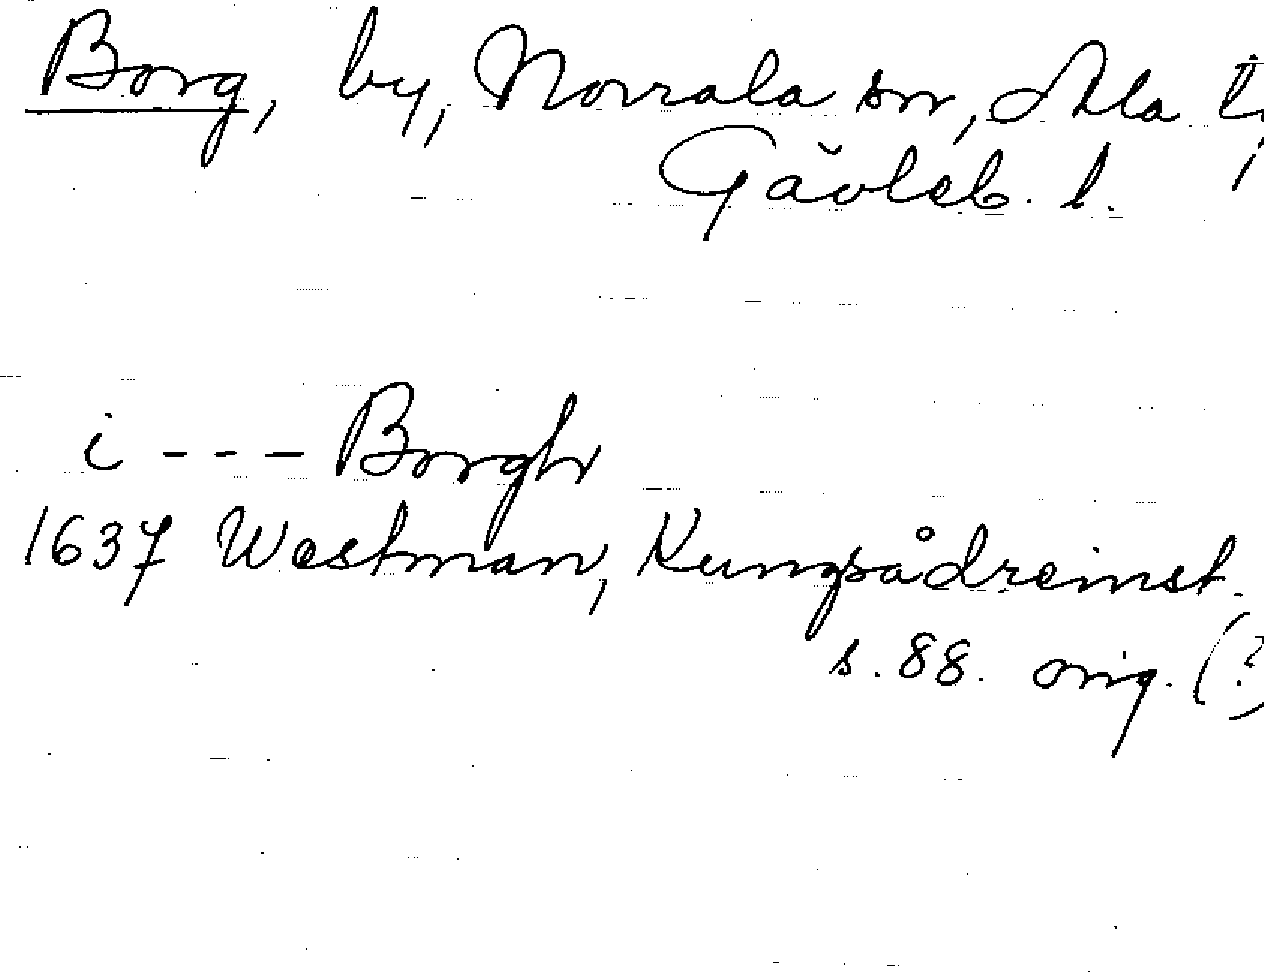 Borg, by, Norrala sn, Ala t,
Gävleb. l.
i --- Borgh
1637 Westman, Kungsådreinst.
s. 88. orig. (?)